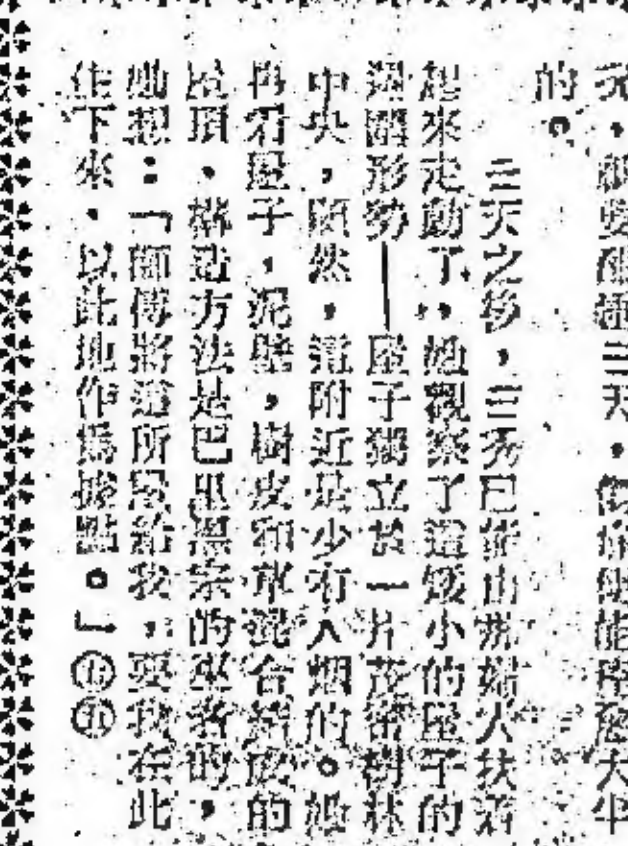 完，就要休養三天，傷痕便能痊愈大半
的。
三天之後，三秀已能由那婦人扶着
起來走動了，她觀察了這矮小的屋子的
週圍形勢——屋子獨立於一片茂密樹林
中央，顯然，這附近是少有人烟的。她
再看屋子，泥壁，樹皮和草混合結成的
屋頂，構造方法是巴里黑宗的巫者的，
她想：「師傅將這所累給我，要我在此
住下來，以此地作爲據點。」㊆㊄